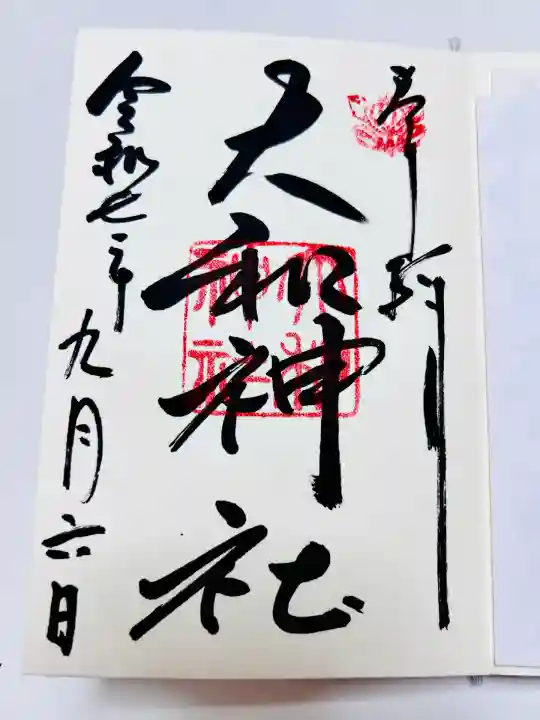 奉拝
大和神社
令和七年九月六日